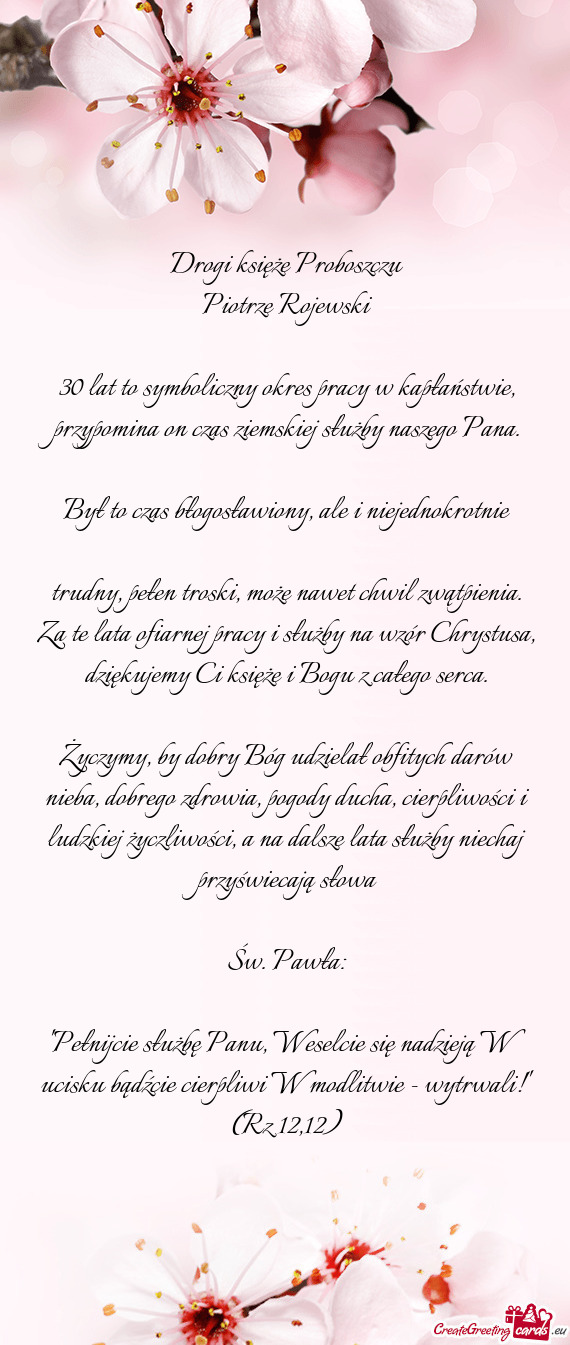 Drogi księże Proboszczu
Piotrze Rojewski
30 lat to symboliczny okres pracy w kapłaństwie,
przypomina on czas ziemskiej służby naszego Pana.
Był to czas błogosławiony, ale i niejednokrotnie
trudny, pełen troski, może nawet chwil zwątpienia.
Za te lata ofiarnej pracy i służby na wzór Chrystusa,
dziękujemy Ci księże i Bogu z całego serca.
Życzymy, by dobry Bóg udzielał obfitych darów
nieba, dobrego zdrowia, pogody ducha, cierpliwości i
ludzkiej życzliwości, a na dalsze lata służby niechaj
przyświecają słowa
Św. Pawła:
"Pełnijcie służbę Panu, Weselcie się nadzieją W
ucisku bądźcie cierpliwi W modlitwie - wytrwali!"
(Rz 12,12)
CreateGreeting cards .eu